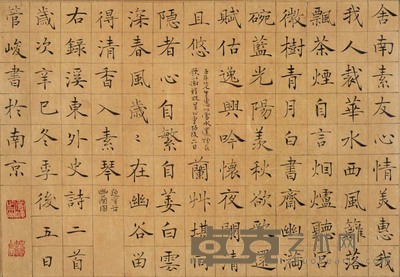 舍南素友心情美惠我
我人裁華水西風籬落
飄茶煙自言烟爐聽呂
微樹青月白書齋幽滿
碗藍光陽羨秋欲遠
賦估逸興吟懷夜闌清
且悠
蘭艸堪同
隱者心自繁自萎白雲
深春風歲々在幽谷留
得清香入素琴
幽蘭圖
右錄溪東外史詩二首
歲次辛巳冬季後五日
管峻書於南京